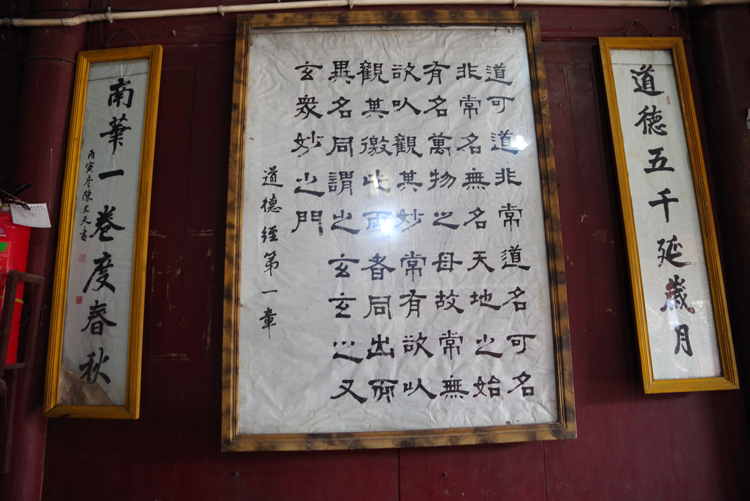 道德五千延歲月
道可道非常道名可名
非常名無名天地之始
有名萬物之母故常無
欲以觀其妙常有欲以
觀其徼此兩者同出而
異名同謂之玄玄之又
玄衆妙之門
道德經第一章
南華一卷度春秋
丙寅冬陳